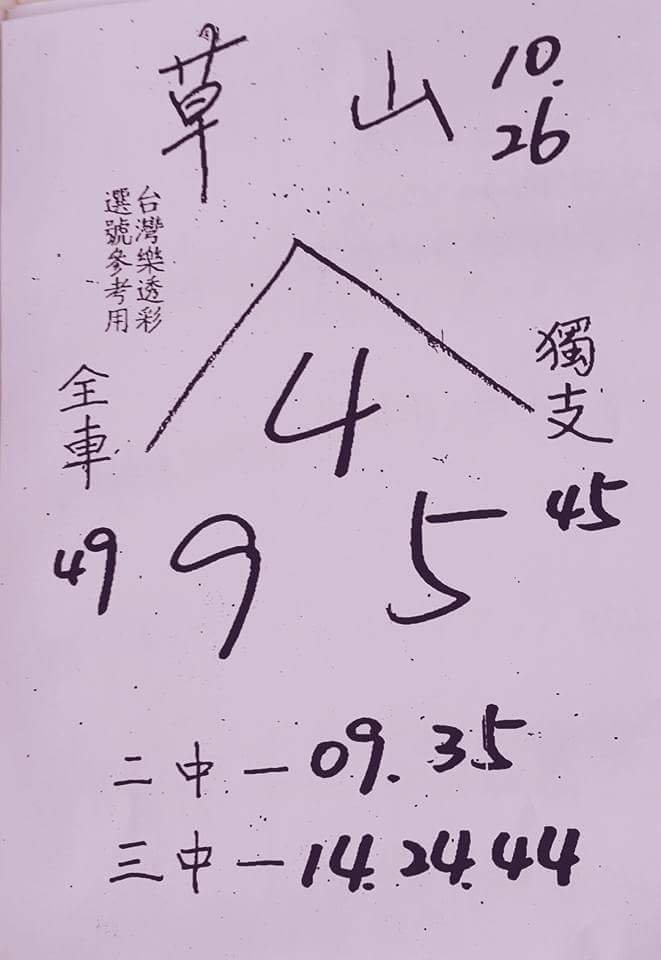 草山 10.
26
台灣樂透彩
選號參考用
獨支
全車
4
45
49
9 5
二中－09.35
三中－14.24.44